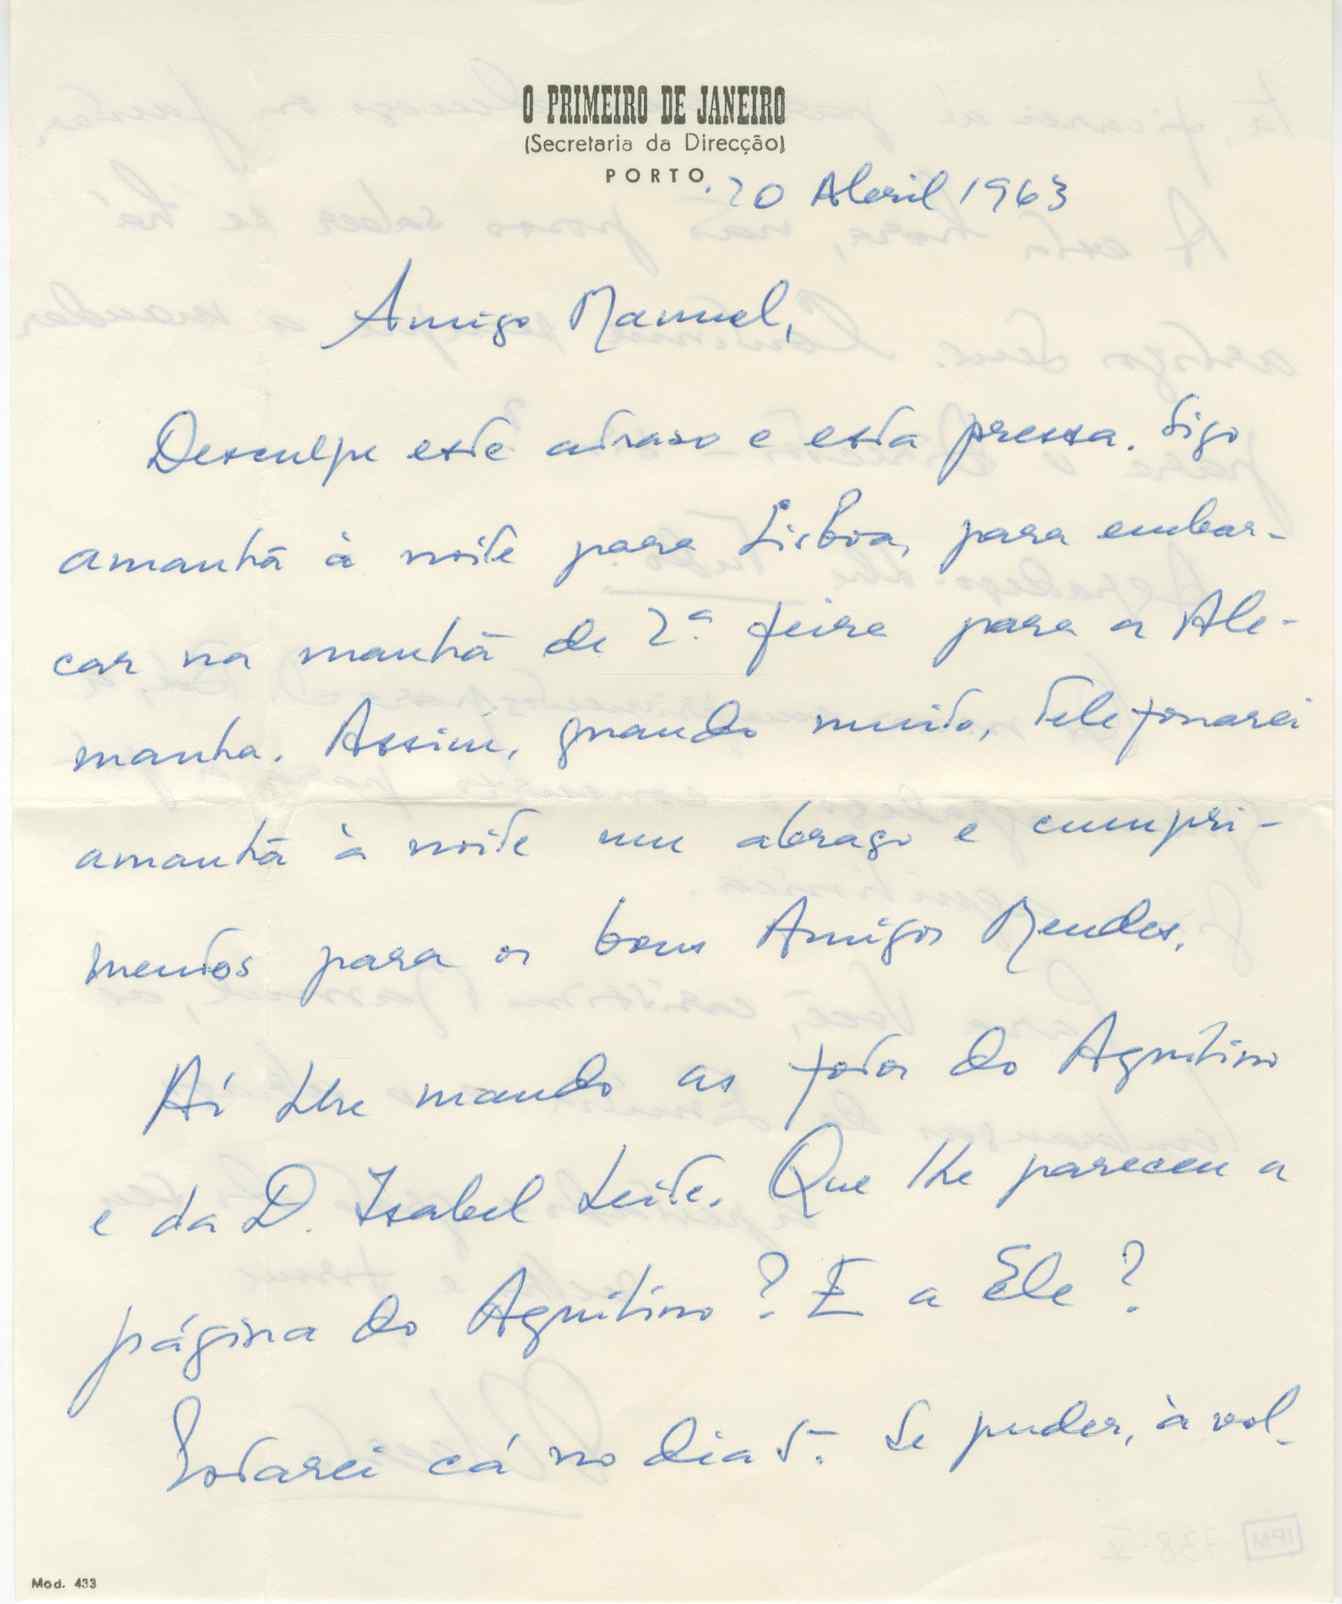 O PRIMEIRO DE JANEIRO
(Secretaria da Direcção)
PORTO
20 Abril 1963
Amigo Manuel,
Desculpe este atraso e esta pressa. Sigo
amanhã à noite para Lisboa, para embar-
car na manhã de 2.ª feira para a Ale-
manha. Assim, quando muito, telefonarei
amanhã à noite um abraço e cumpri-
mentos para os bons Amigos Mendes.
Aí lhe mando as fotos do Agostinho
e da D. Isabel Leite. Que lhe pareceu a
página do Agostinho? E a Ele?
Estarei cá no dia 5. Se puder, à vol-
Mod. 433